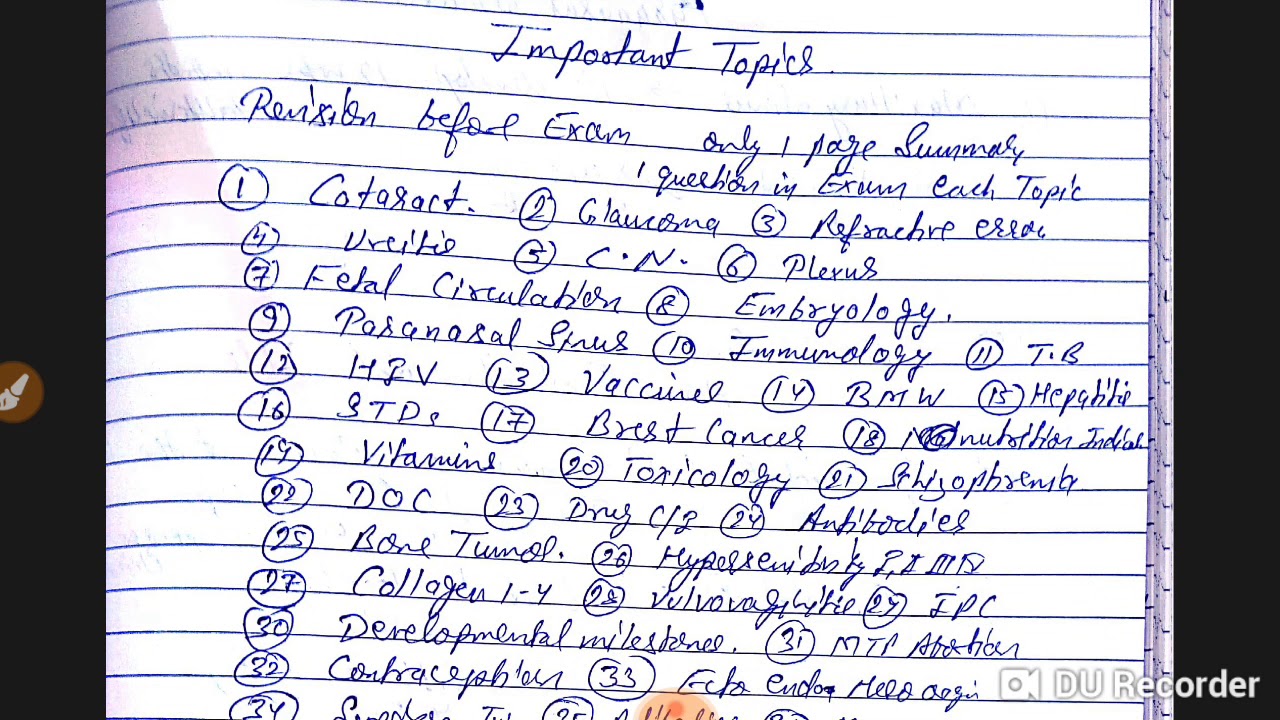 Important Topics
Revision before Exam only 1 page Summary
1 question in Exam each Topic
① Cataract. ② Glaucoma ③ Refractive error
④ Uveitis ⑤ C.N. ⑥ Plexus
⑦ Fetal Circulation ⑧ Embryology.
⑨ Paranasal Sinus ⑩ Immunology ⑪ T.B
⑫ HPV ⑬ Vaccines ⑭ BMW ⑮ Hepatitis
⑯ STDs ⑰ Brest Cancer ⑱ nutrition
⑲ Vitamins ⑳ Toxicology ㉑ Schizophrenia
㉒ DOC ㉓ Drug C/I ㉔ Antibodies
㉕ Bone Tumor. ㉖ I, II III IV
㉗ Collagen 1-4 ㉘ Vulvovaginitis ㉙ IPC
㉚ Developmental milestones. ㉛ MTP Abortion
㉜ Contraception ㉝ Ecto endo
㉞
DU Recorder